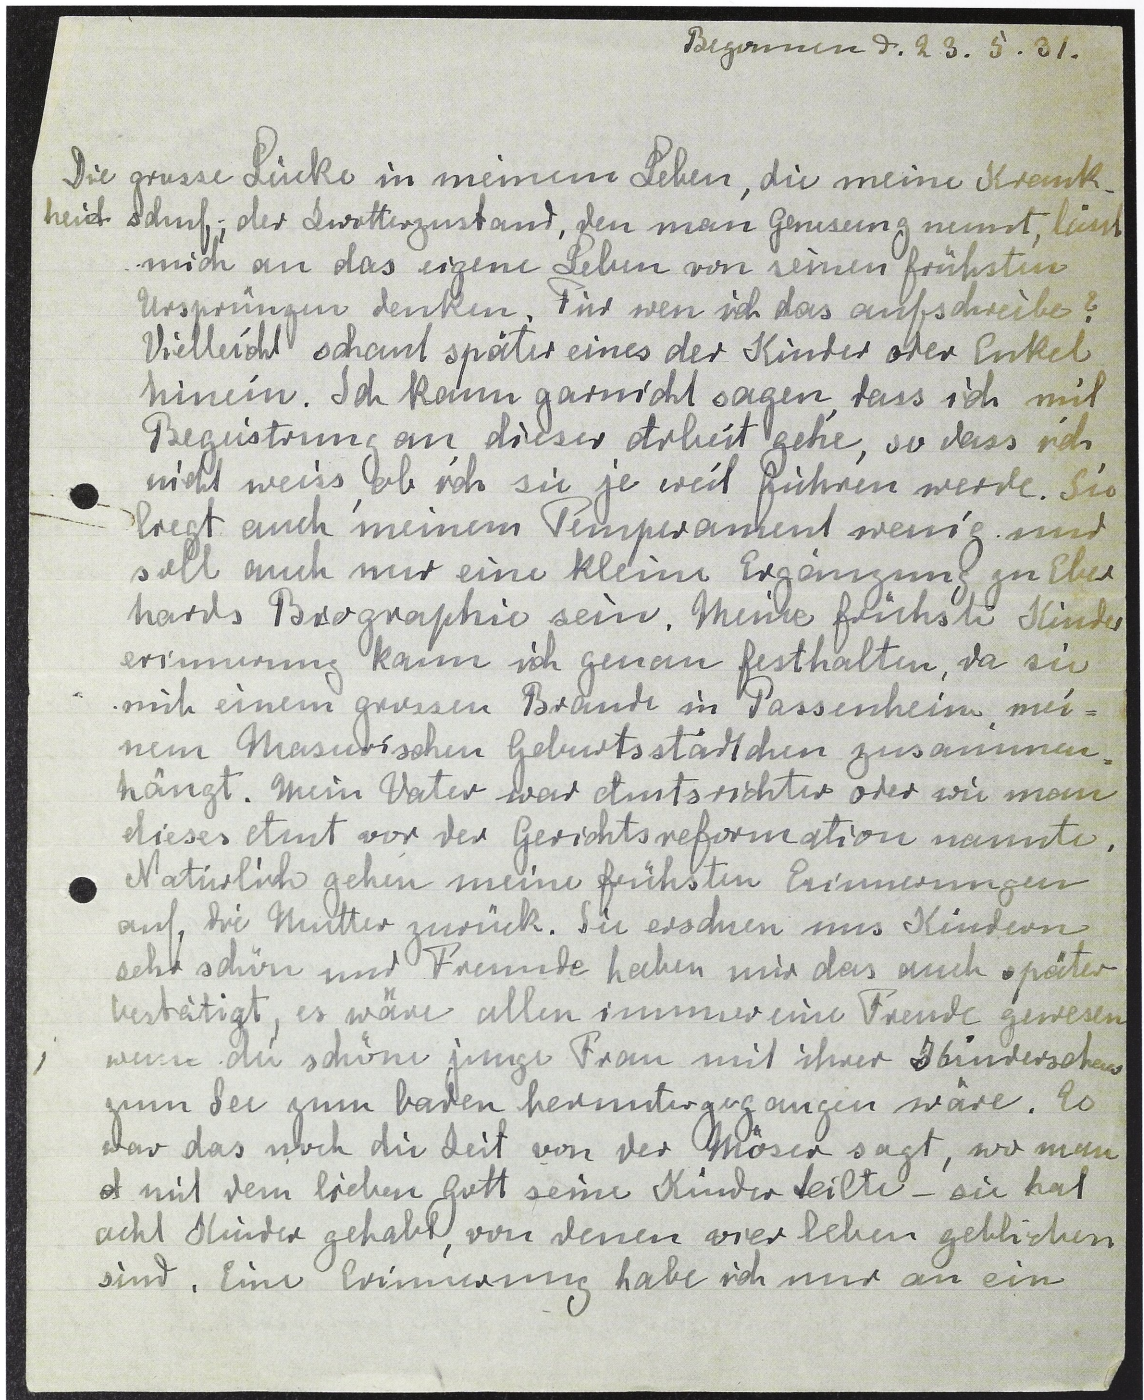 Begonnen d. 23. 5. 31.
Die grosse Lücke in meinem Leben, die meine Krank-
heit schuf, der Zwitterzustand, den man Genesung nennt, lässt
mich an das eigene Leben von seinen frühsten
Ursprüngen denken. Für wen ich das aufschreibe?
Vielleicht schaut später eines der Kinder oder Enkel
hinein. Ich kann garnicht sagen, dass ich mit
Begeistrung an dieser Arbeit gehe, so dass ich
nicht weiss, ob ich sie je weit führen werde. Sie
liegt auch meinem Temperament wenig und
soll auch nur eine kleine Ergänzung zu Eber
hards Biographie sein. Meine frühste Kinder
erinnerung kann ich genau festhalten, da sie
mit einem grossen Brande in Passenheim, mei=
nem Masurischen Geburtsstädtchen zusammen=
hängt. Mein Vater war Amtsrichter oder wie man
dieses Amt vor der Gerichtsreformation nannte.
Natürlich gehen meine frühsten Erinnerungen
auf die Mutter zurück. Sie erschien uns Kindern
sehr schön und Freunde haben mir das auch später
bestätigt, es wäre allen immer eine Freude gewesen
wenn die schöne junge Frau mit ihrer Kinderschar
zum See zum baden heruntergegangen wäre. Es
war das noch die Zeit von der Möser sagt, wo man
mit dem lieben Gott seine Kinder teilte - sie hat
acht Kinder gehabt, von denen vier leben geblieben
sind. Eine Erinnerung habe ich nur an ein